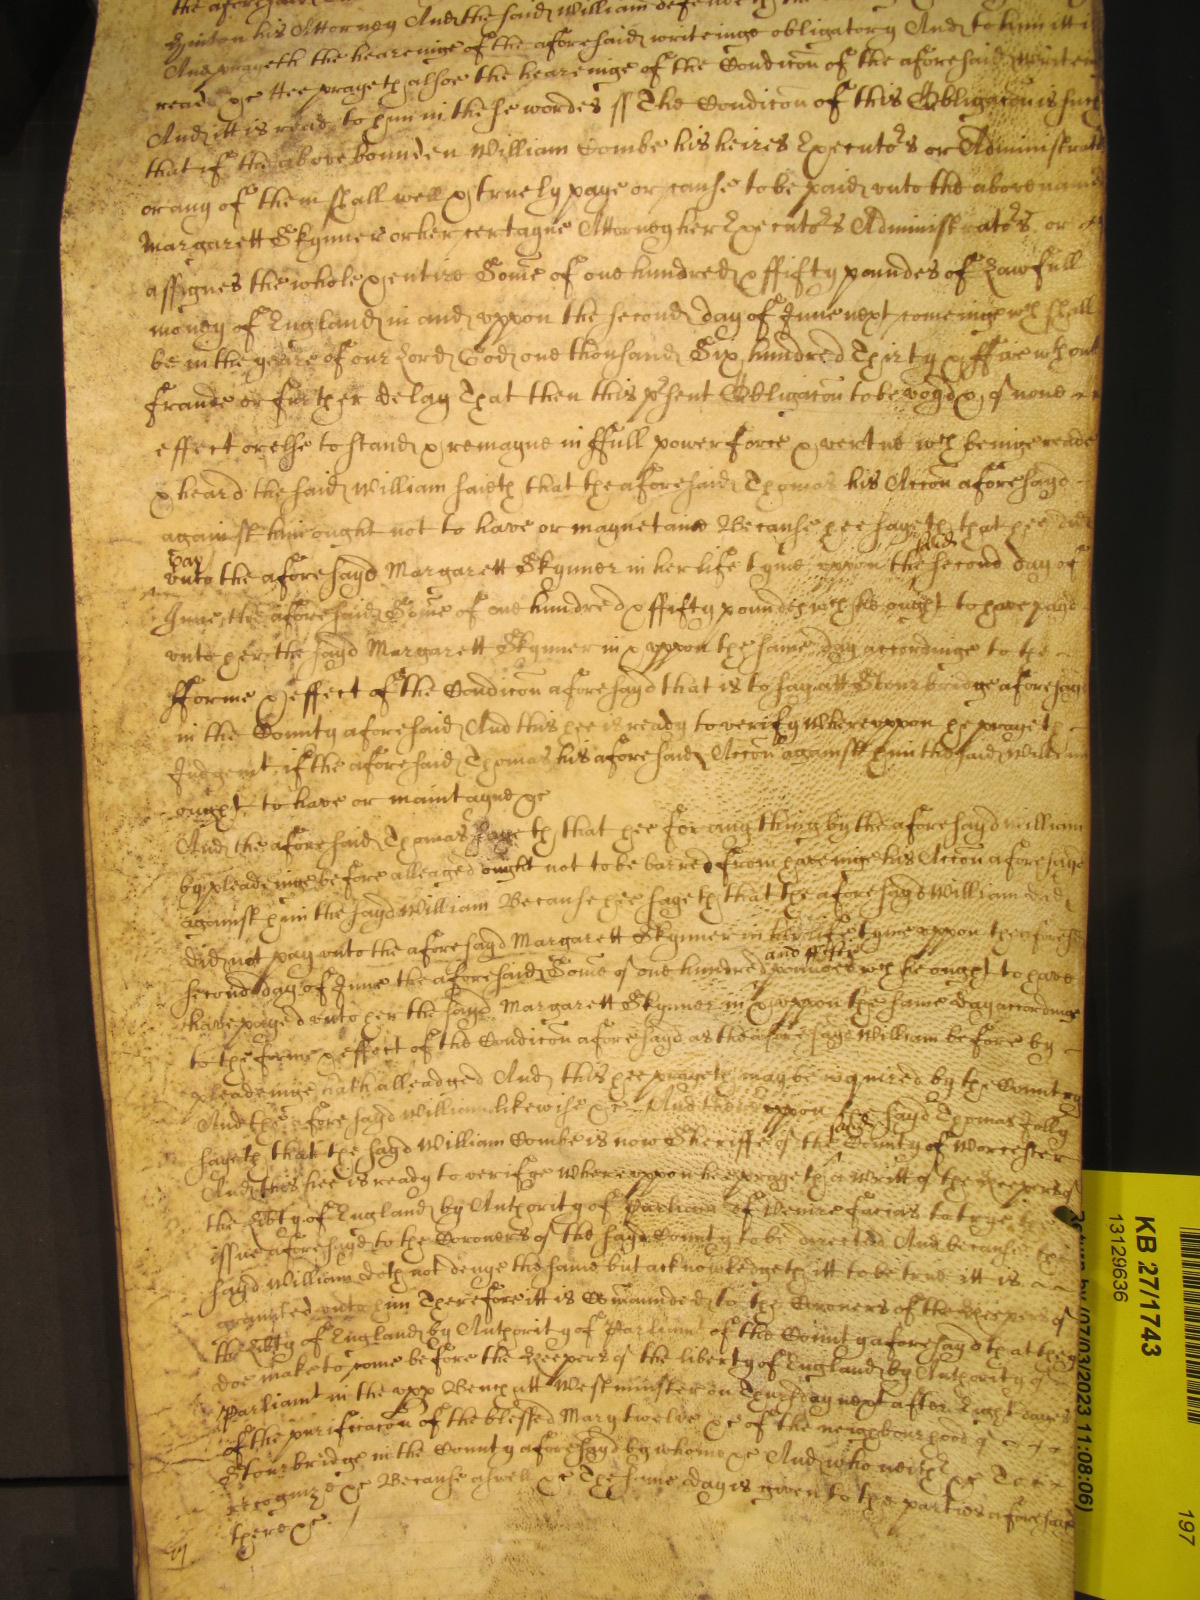 the aforesaid
Hinton his Attorney And the said William defendeth the
And prayeth the hearenige of the aforesaid writeinge obligatory And to him itt i
read &c Hee prayeth alsoe the hearenige of the Condicõn of the aforesaid Writein
And itt is read to him in these wordes ss The Condicõn of this Obligacõn is such
that if the above bounden William Combe his heires Executors or Administrato
or any of them shall well & truely paye or cause to be paid vnto the above named
Margarett Skynner or her certayne Attorney her Executors Administrators or
assignes the whole & entire Some of one hundred & ffifty poundes of Lawfull
money of England in and vppon the second day of June next comeinge wch shall
be in the yeare of our Lord God one thousand Six hundred Thirty & ffive wthout
fraude or further delay That then this prsent Obligacõn to be voyd & of none
effect or else to stand & remayne in ffull power force & vertue wch beinge reade
& heard the said William saieth that the aforesaid Thomas his Accõn aforesayd
against him ought not to have or mayntaine Because hee sayeth that hee did
pay
vnto the aforesayd Margarett Skynner in her life tyme vppon the said second day of
June the aforesaid Some of one hundred & ffifty poundes wch he ought to have payd
vnto her the sayd Margarett Skynner in & vppon the same day accordinge to the
fforme & effect of the Condicõn aforesayd that is to say att Stourbridge aforesayd
in the County aforesaid And this hee is ready to verify Wherevppon he prayeth
Judgemt if the aforesaid Thomas his aforesaid Accõn against him the said William
ought to have or maintayne &c
And the aforesaid Thomas sayeth that hee for any thing by the aforesayd William
by pleadeinge before alleaged ought not to be barred from haveinge his Accõn aforesayd
against him the sayd William Because hee sayeth that the aforesayd William did
did not pay vnto the aforesayd Margarett Skynner in her life tyme vppon the aforesd
second day of June the aforesaid Some of one hundred and ffiftie poundes wch he ought to have
have payed vnto her the sayd Margarett Skynner in & vppon the same day accordinge
to the forme & effect of the Condicõn aforesayd as the aforesayd William before by
pleadeinge hath alleadged And this hee prayeth may be inquired by the Country
And the aforesayd William likewise &c And therevppon the sayd Thomas Jolly
sayeth that the sayd William Combe is now Sheriffe of the said County of Worcester
And this hee is ready to verifye Wherevppon hee prayeth a writt of the Keepers of
the Libty of England by Authority of Parliamt of Venire facias to trye the
issue aforesayd to the Coroners of the sayd County to be directed And because the
sayd William doth not denye the same but acknowledgeth itt to be true itt is
graunted vnto him Therefore itt is Comaunded to the Coroners of the Keepers of
the Libty of England by Authority of Parliamt of the County aforesayd that they
doe make to come before the Keepers of the liberty of England by Authority of
Parliamt in the vpp Bench att Westminster on Thursday next after Eight dayes
of the purificacõn of the blessed Mary twelve &c of the neighbourhood of
Stourbridge in the County aforesayd by whome &c And who neither &c To
recognize &c Because aswell &c The same day is given to the parties aforesaid
there &c
KB 27/1743
13129636
(07/03/2023 11:08:06)
197